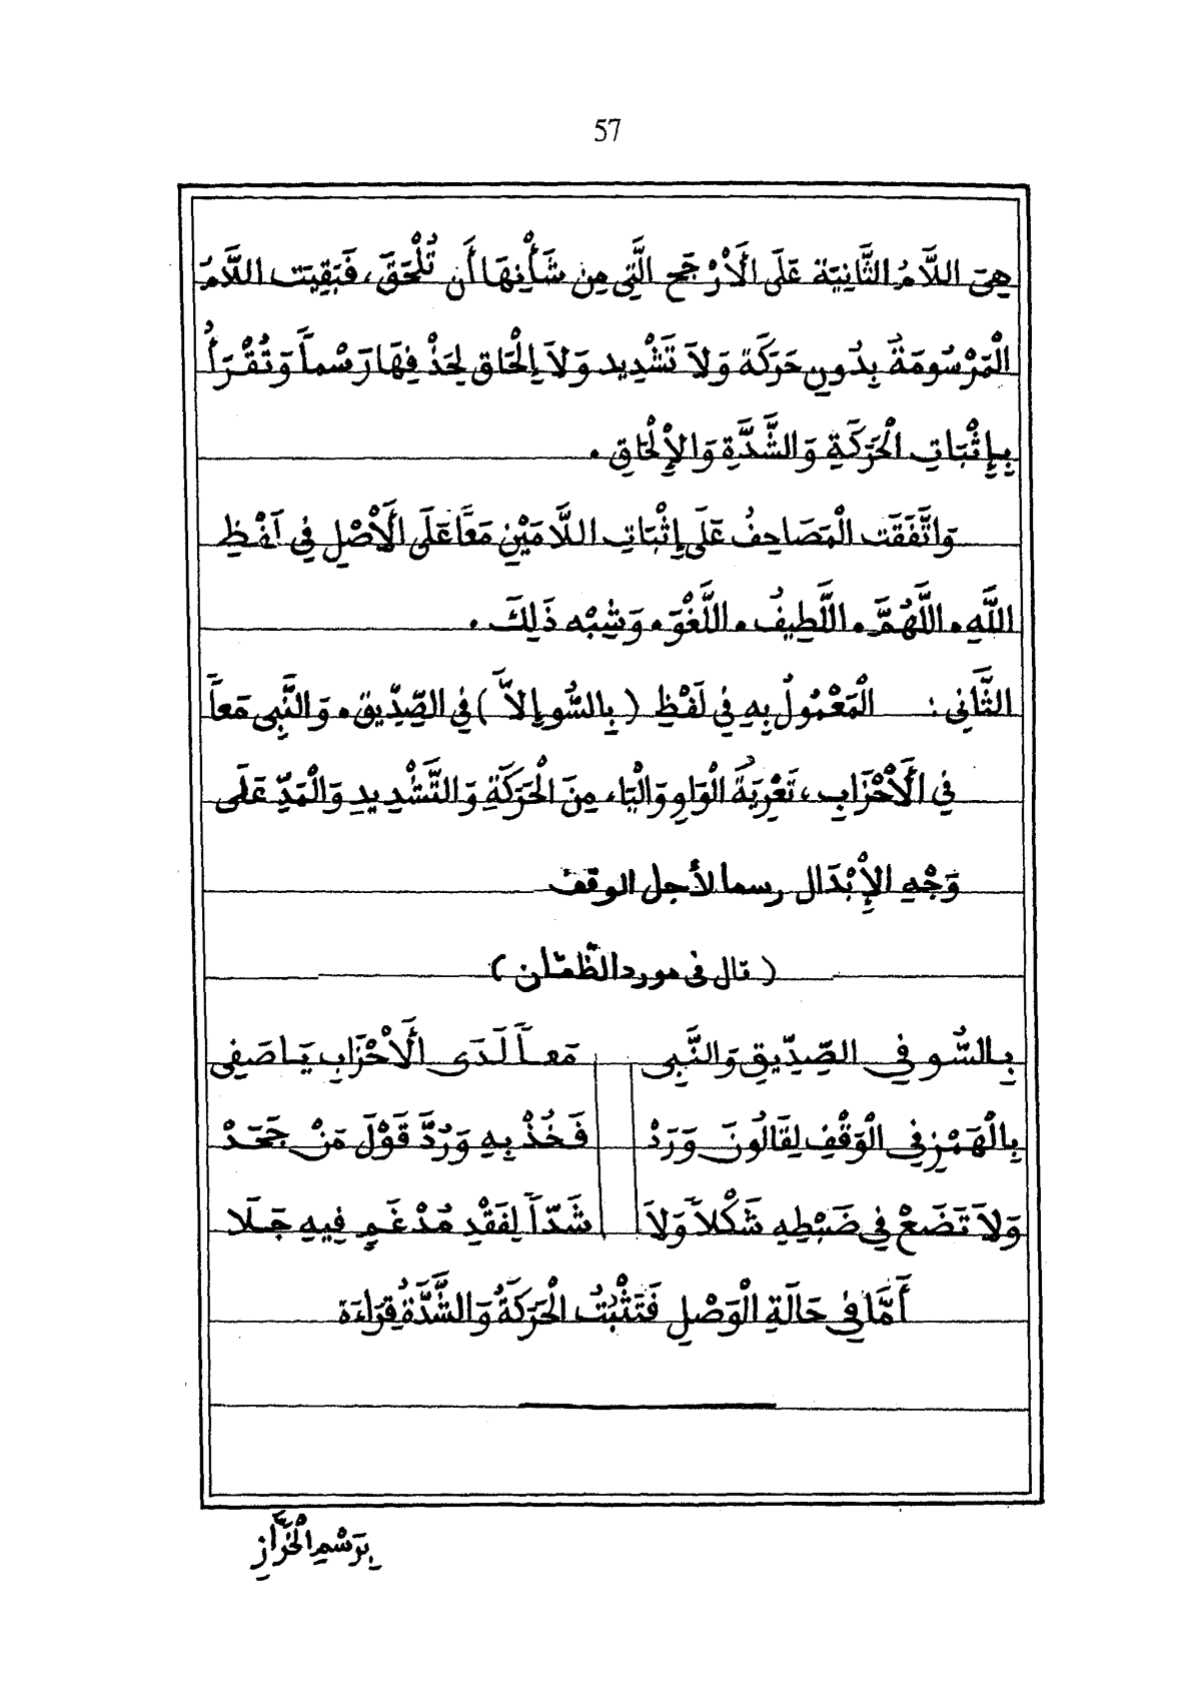 57
هِيَ اللَّامُ الثَّانِيَة عَلَى الْأَرْجَحِ الَّتِي مِن شَأْنِهَا أَن تُلْحَقَ، فَبَقِيَت اللَّامُ
الْمَرْسُومَةُ بِدُونِ حَرَكَة وَلَا تَشْدِيد وَلَا إِلْحَاق لِحَذْفِهَا رَسْماً وَتُقْرَأُ
بِإِثْبَاتِ الْحَرَكَةِ وَالشَّدَّةِ وَالْإِلْحَاقِ.
وَاتَّفَقَت الْمَصَاحِفُ عَلَى إِثْبَاتِ اللَّامَيْنِ مَعاً عَلَى الْأَصْلِ فِي لَفْظِ
اللَّهِ. اللَّهُمَّ. اللَّطِيفُ. اللَّغْوَ. وَشِبْهِ ذَلِكَ.
الثَّانِي: الْمَعْمُولُ بِهِ فِي لَفْظِ (بِالسُّوِ إِلاَّ) فِي الصِّدِّيق. وَالنَّبِي مَعاً
فِي الْأَحْزَابِ، تَعْرِيَةُ الْوَاوِ وَالْيَاءِ مِنَ الْحَرَكَةِ وَالتَّشْدِيدِ وَالْمَدِّ عَلَى
وَجْهِ الْإِبْدَال رسما لأجل الوقف
(قال في مورد الظّمّان)
بِالسُّوِ فِي الصِّدِّيقِ وَالنَّبِي مَعاً لَدَى الْأَحْزَابِ يَا صَفِي
بِالْهَمْزِ فِي الْوَقْفِ لِقَالُونَ وَرَدْ فَخُذْ بِهِ وَرُدَّ قَوْلَ مَنْ جَحَدْ
وَلَا تَضَعْ فِي ضَبْطِهِ شَكْلاً وَلَا شَدّاً لِفَقْدِ مُدْغَمٍ فِيهِ جَلَا
أَمَّا فِي حَالَةِ الْوَصْلِ فَتَثْبُتُ الْحَرَكَةُ وَالشَّدَّةُ قِرَاءَة
بِرَسْمِ الْخَرَّازِ